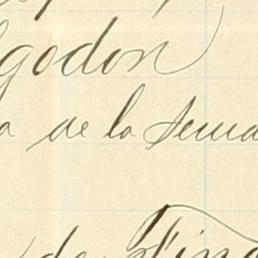 lgodon
a de la Sema
de Fina